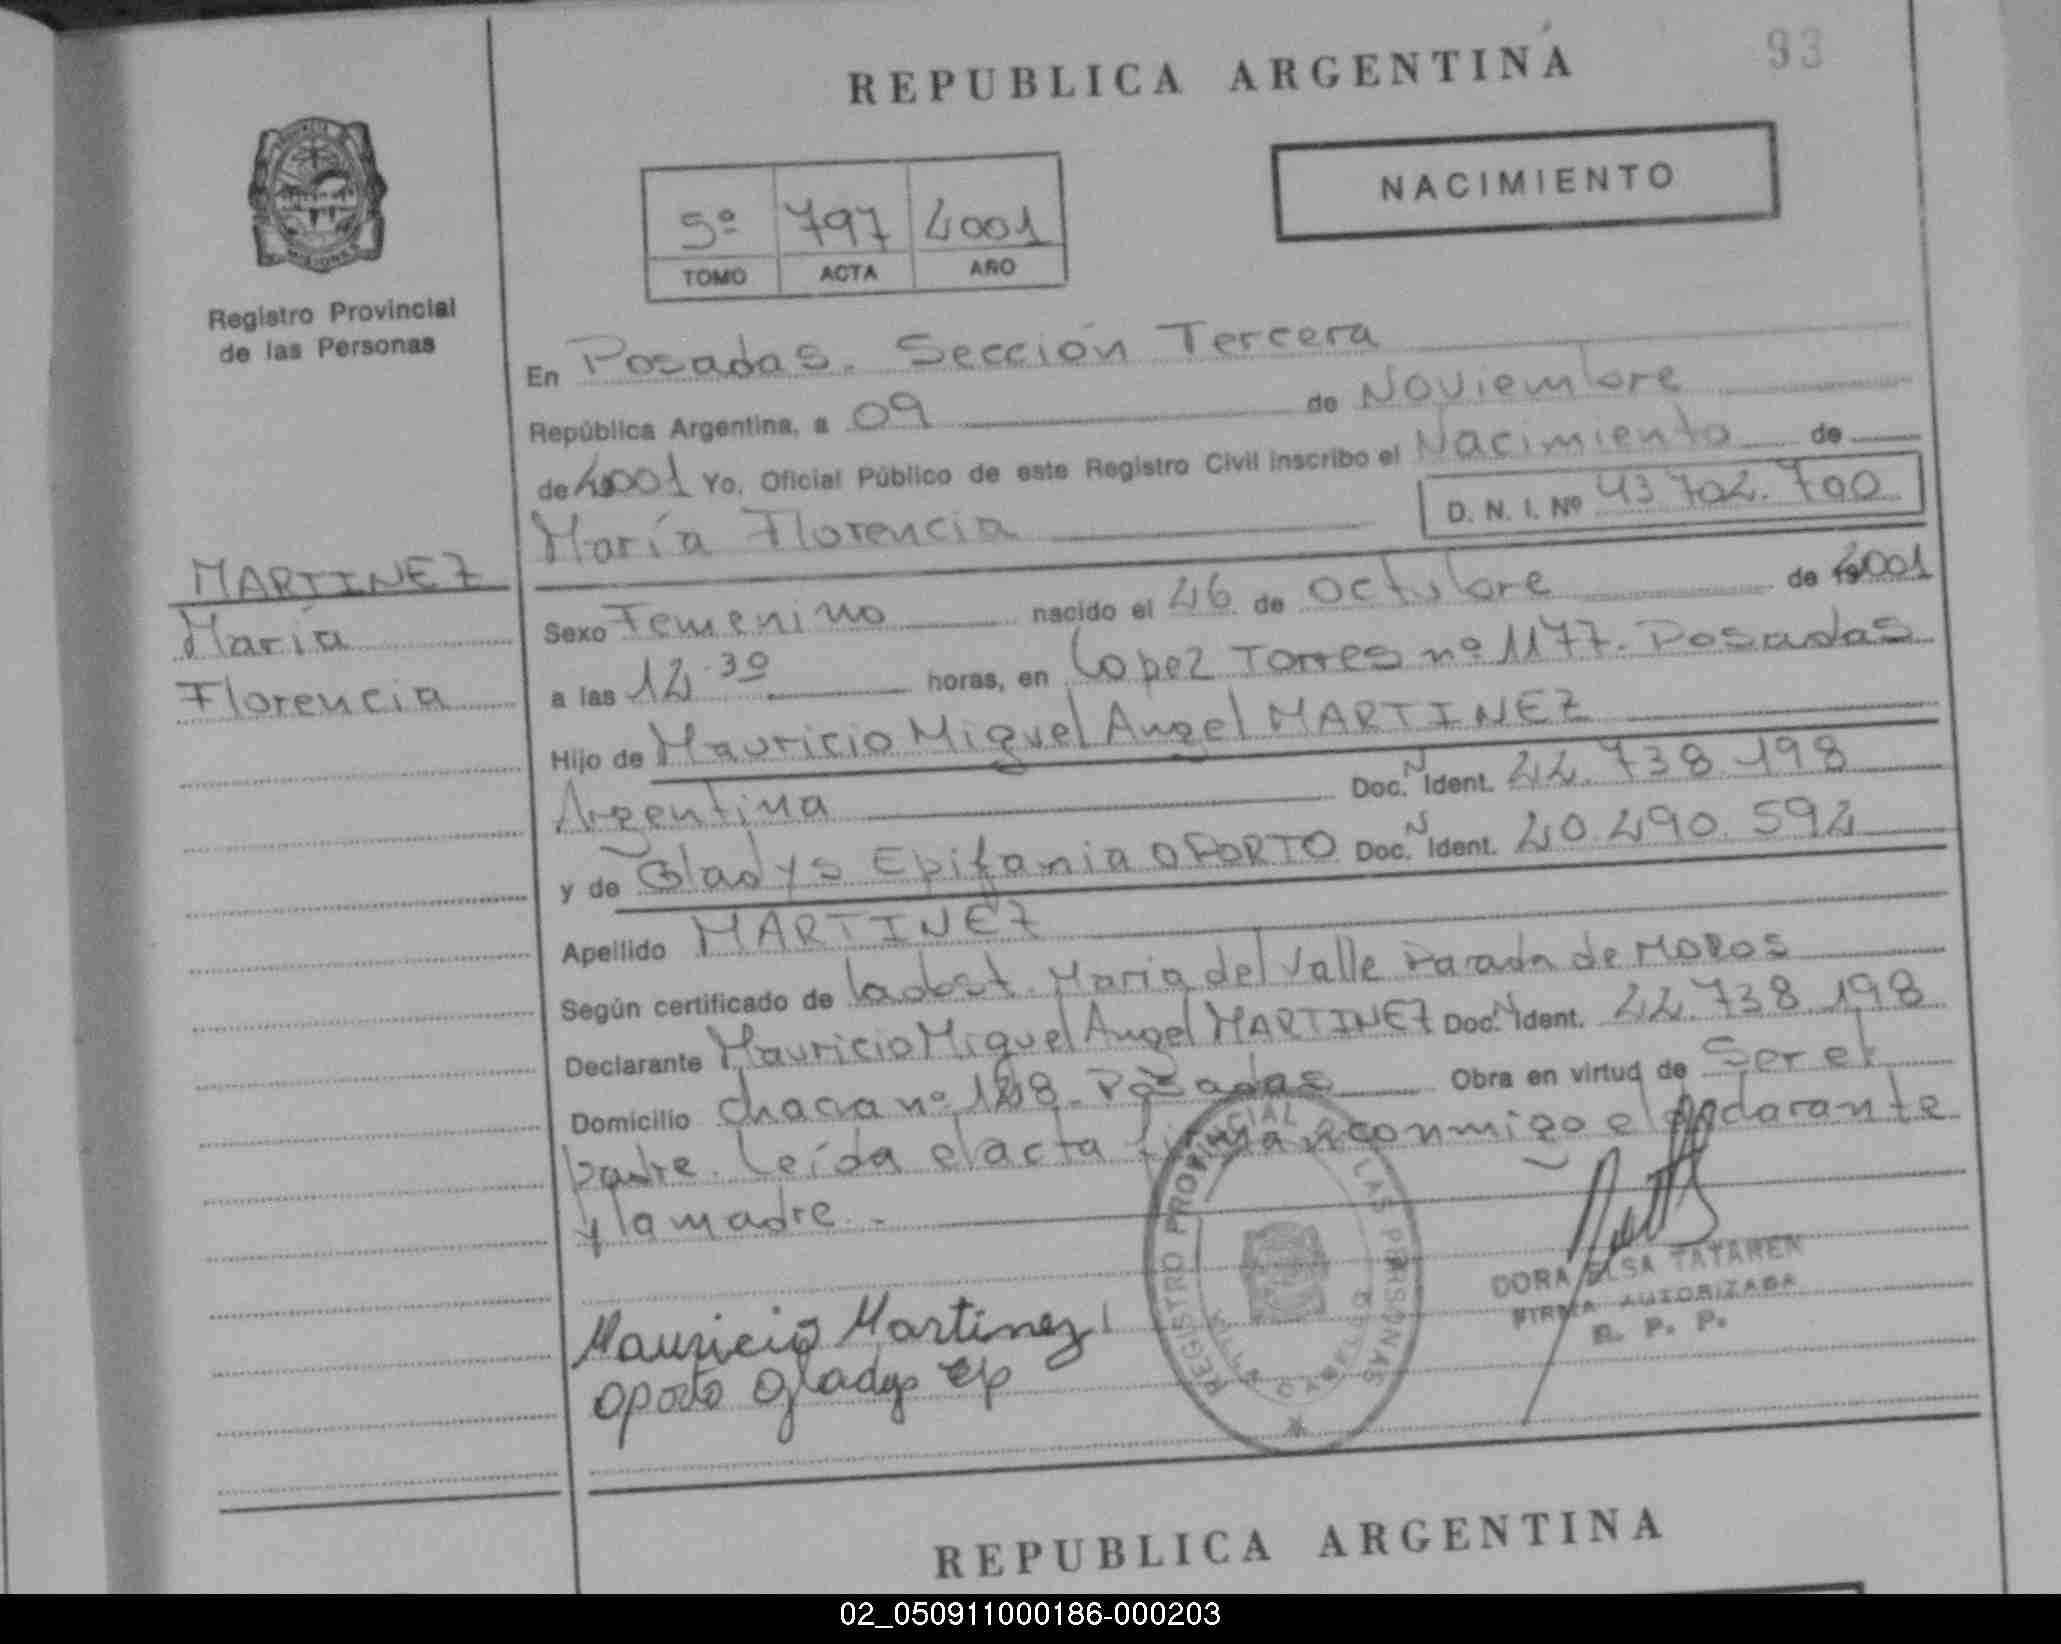 93
REPUBLICA ARGENTINA
NACIMIENTO
5º 797 2001
TOMO ACTA AÑO
Registro Provincial
de las Personas
En Posadas. Sección Tercera
República Argentina, a 09 de Noviembre
de 2001 Yo, Oficial Público de este Registro Civil inscribo el Nacimiento de
María Florencia D. N. I. Nº 43.702.700
MARTINEZ
María
Florencia
Sexo Femenino nacido el 26 de octubre de 2001
a las 12.30 horas, en Lopez Torres nº 1177. Posadas
Hijo de Mauricio Miguel Angel MARTINEZ
Argentina Doc. N Ident. 22.738.198
y de Gladys Epifania OPORTO Doc. N Ident. 20.290.592
Apellido MARTINEZ
Según certificado de la obst. Maria del Valle Parada de MOROS
Declarante Mauricio Miguel Angel MARTINEZ Doc. N Ident. 22.738.198
Domicilio chacra nº 128. Posadas Obra en virtud de Ser el
padre. Leída el acta firman conmigo el declarante
y la madre.-
REGISTRO PROVINCIAL LAS PERSONAS
DORA ELSA TATAREN
FIRMA AUTORIZADA
R. P. P.
Mauricio Martinez
Oporto Gladys Ep
REPUBLICA ARGENTINA
02_050911000186-000203